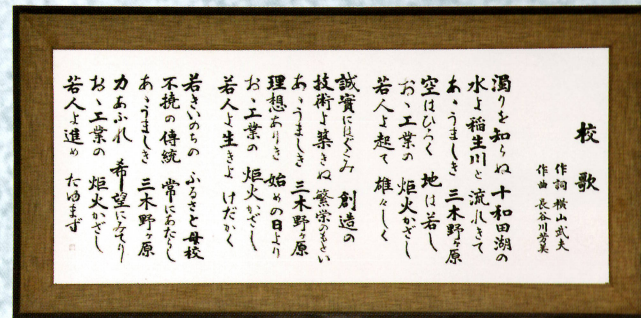 校歌
作詞 横山武夫
作曲 長谷川芳美
濁りを知らぬ 十和田湖の
水よ稲生川と 流れきて
あゝうましき 三木野ヶ原
空はひらく 地は若し
おゝ工業の 炬火かざし
若人よ起て 雄々しく
誠實にはぐくみ 創造の
技術よ築きぬ 繁栄のもとい
あゝうましき 三木野ヶ原
理想ありき 始めの日より
おゝ工業の 炬火かざし
若人よ生きよ けだかく
若きいのちの ふるさと母校
不撓の傳統 常にあたらし
あゝうましき 三木野ヶ原
力あふれ 希望にみてり
おゝ工業の 炬火かざし
若人よ進め たゆまず